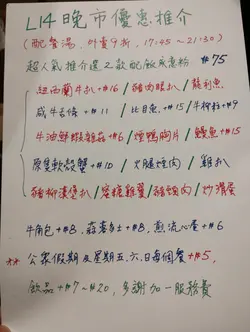 L14 晚市優惠推介
(配餐湯, 外賣9折, 17:45～21:30)
超人氣推介選2款配飯或意粉 $75
紐西蘭牛扒 +16 / 豬肉眼扒 / 龍利魚
咸牛舌條 +# 11 / 比目魚 +#15 / 牛柳粒 +#9
牛油鮮蝦雞菇 +#6 / 煙鴨胸片 / 鰻魚 +#15
原隻軟殼蟹 +#10 / 火腿煙肉 / 雞扒
豬柳漢堡扒 / 蜜糖雞翼 / 豬頸肉 / 炒滑蛋
牛角包 +#8, 蒜蓉多士 +#8, 煎流心蛋 +#6
** 公眾假期及星期五.六.日每個餐 +#5,
飲品 +#7～#20, 多謝加一服務費